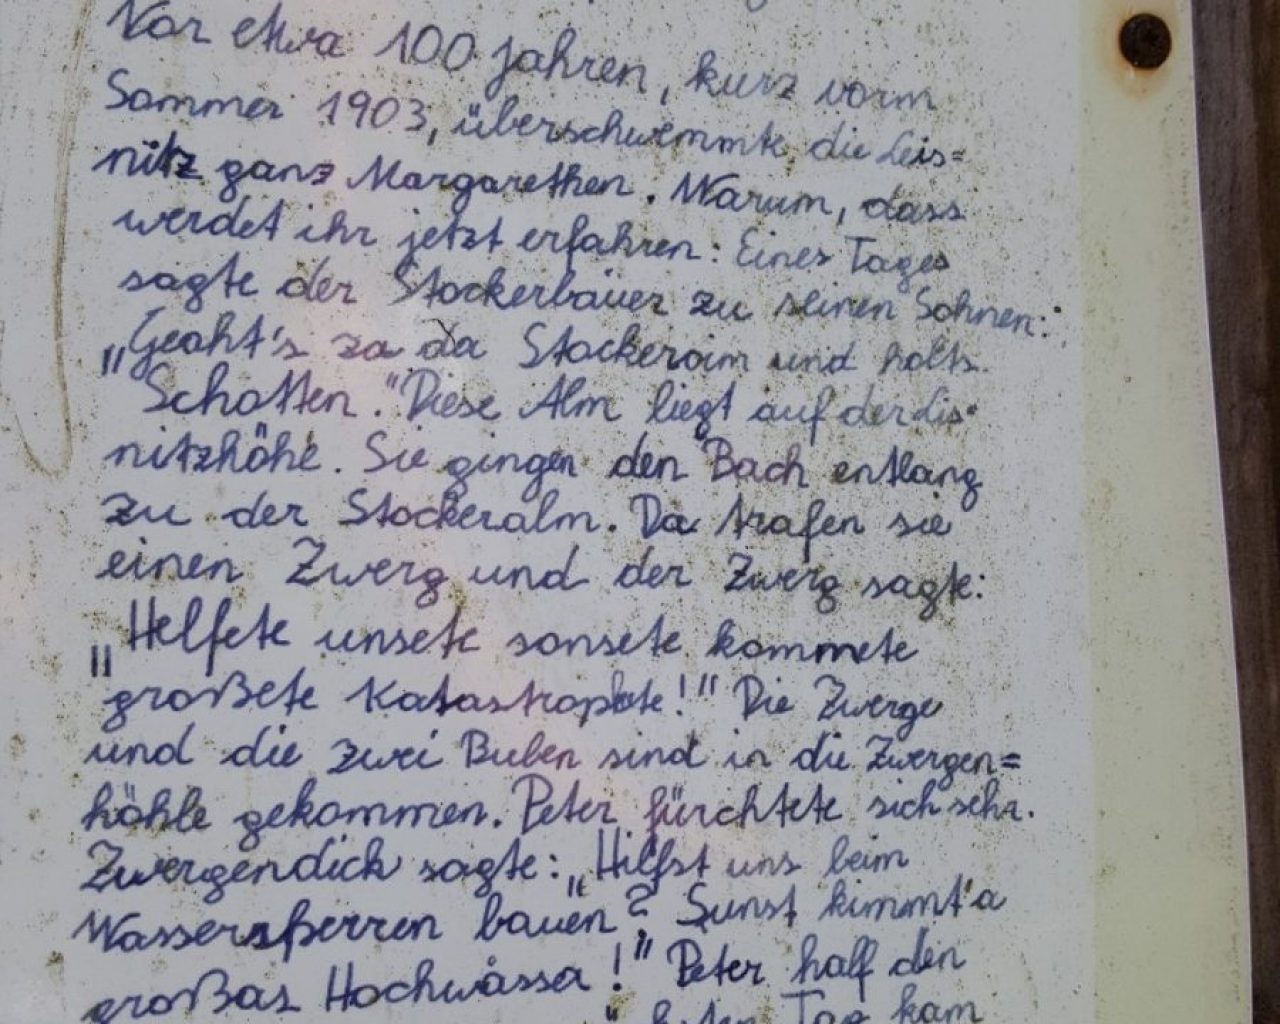 Vor etwa 100 Jahren, kurz vorm
Sommer 1903, überschwemmte die Leis=
nitz ganz Margarethen. Warum, dass
werdet ihr jetzt erfahren: Eines Tages
sagte der Stockerbauer zu seinen Söhnen:
„Geaht's za da Stockeroim und holts
Schotten." Diese Alm liegt auf der Lis-
nitzhöhe. Sie gingen den Bach entlang
zu der Stockeralm. Da trafen sie
einen Zwerg und der Zwerg sagte:
„Helfete unsete sonsete kommete
großete Katastrophte!" Die Zwerge
und die zwei Buben sind in die Zwergen=
höhle gekommen. Peter fürchtete sich sehr.
Zwergendick sagte: „Hilfst uns beim
Wassersperren bauen? Sunst kimmt a
großas Hochwåssa!" Peter half den
Tag kam